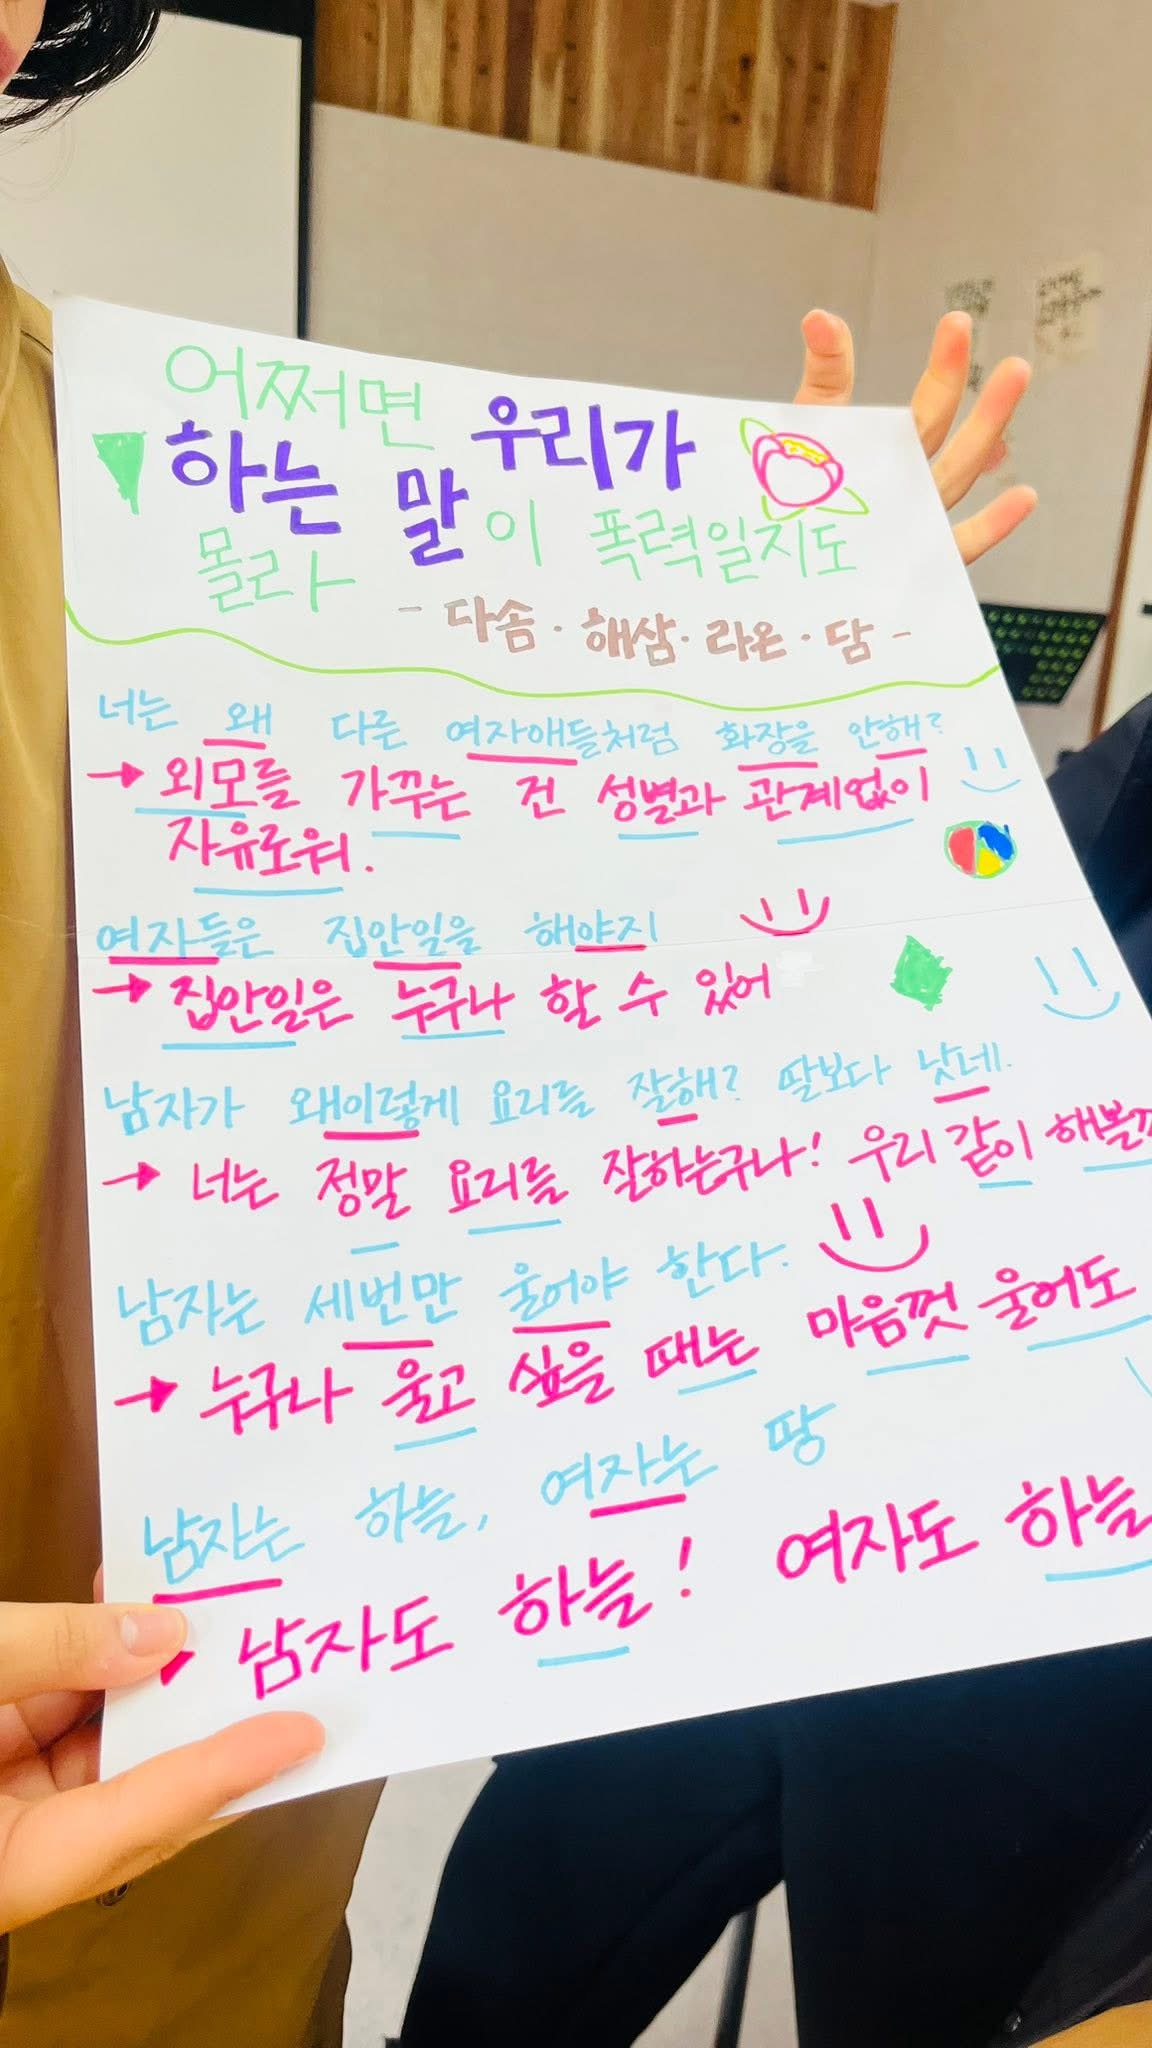 어쩌면 우리가
하는 말이 폭력일지도
몰라
- 다솜 · 해삼 · 라온 · 담 -
너는 왜 다른 여자애들처럼 화장을 안해?
→ 외모를 가꾸는 건 성별과 관계없이
자유로워.
여자들은 집안일을 해야지
→ 집안일은 누구나 할 수 있어
남자가 왜이렇게 요리를 잘해? 딸보다 낫네.
→ 너는 정말 요리를 잘하는구나! 우리 같이 해볼까
남자는 세번만 울어야 한다.
→ 누구나 울고 싶을 때는 마음껏 울어도
남자는 하늘, 여자는 땅
남자도 하늘! 여자도 하늘